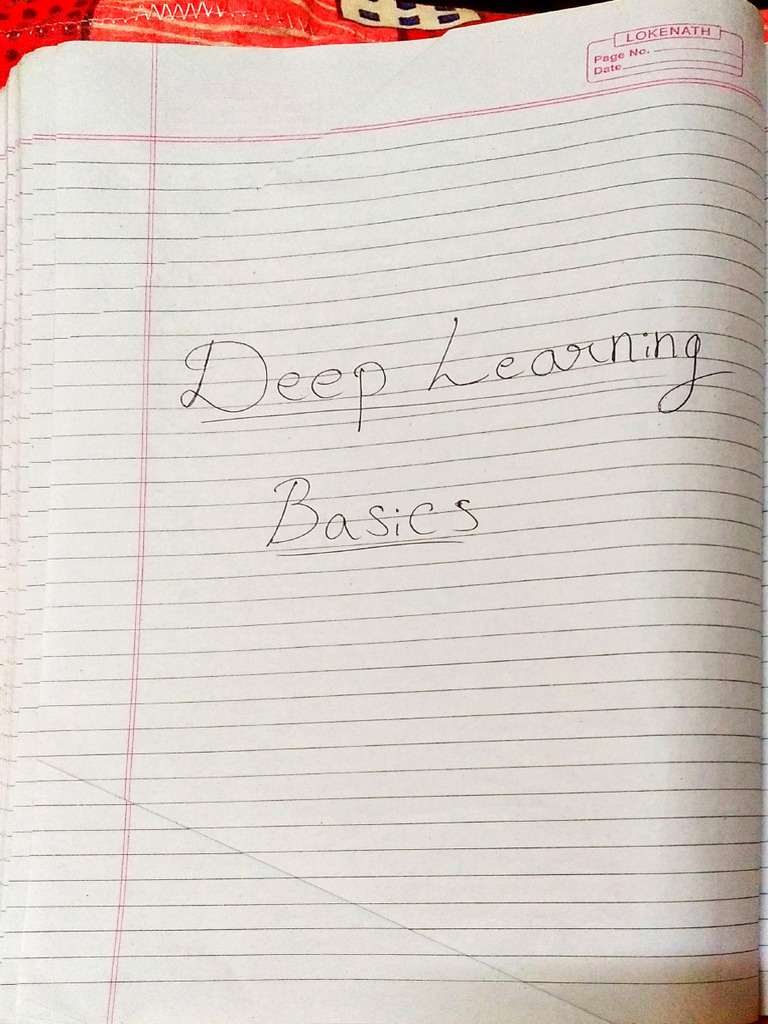 LOKENATH
Page No.
Date
Deep Learning
Basics